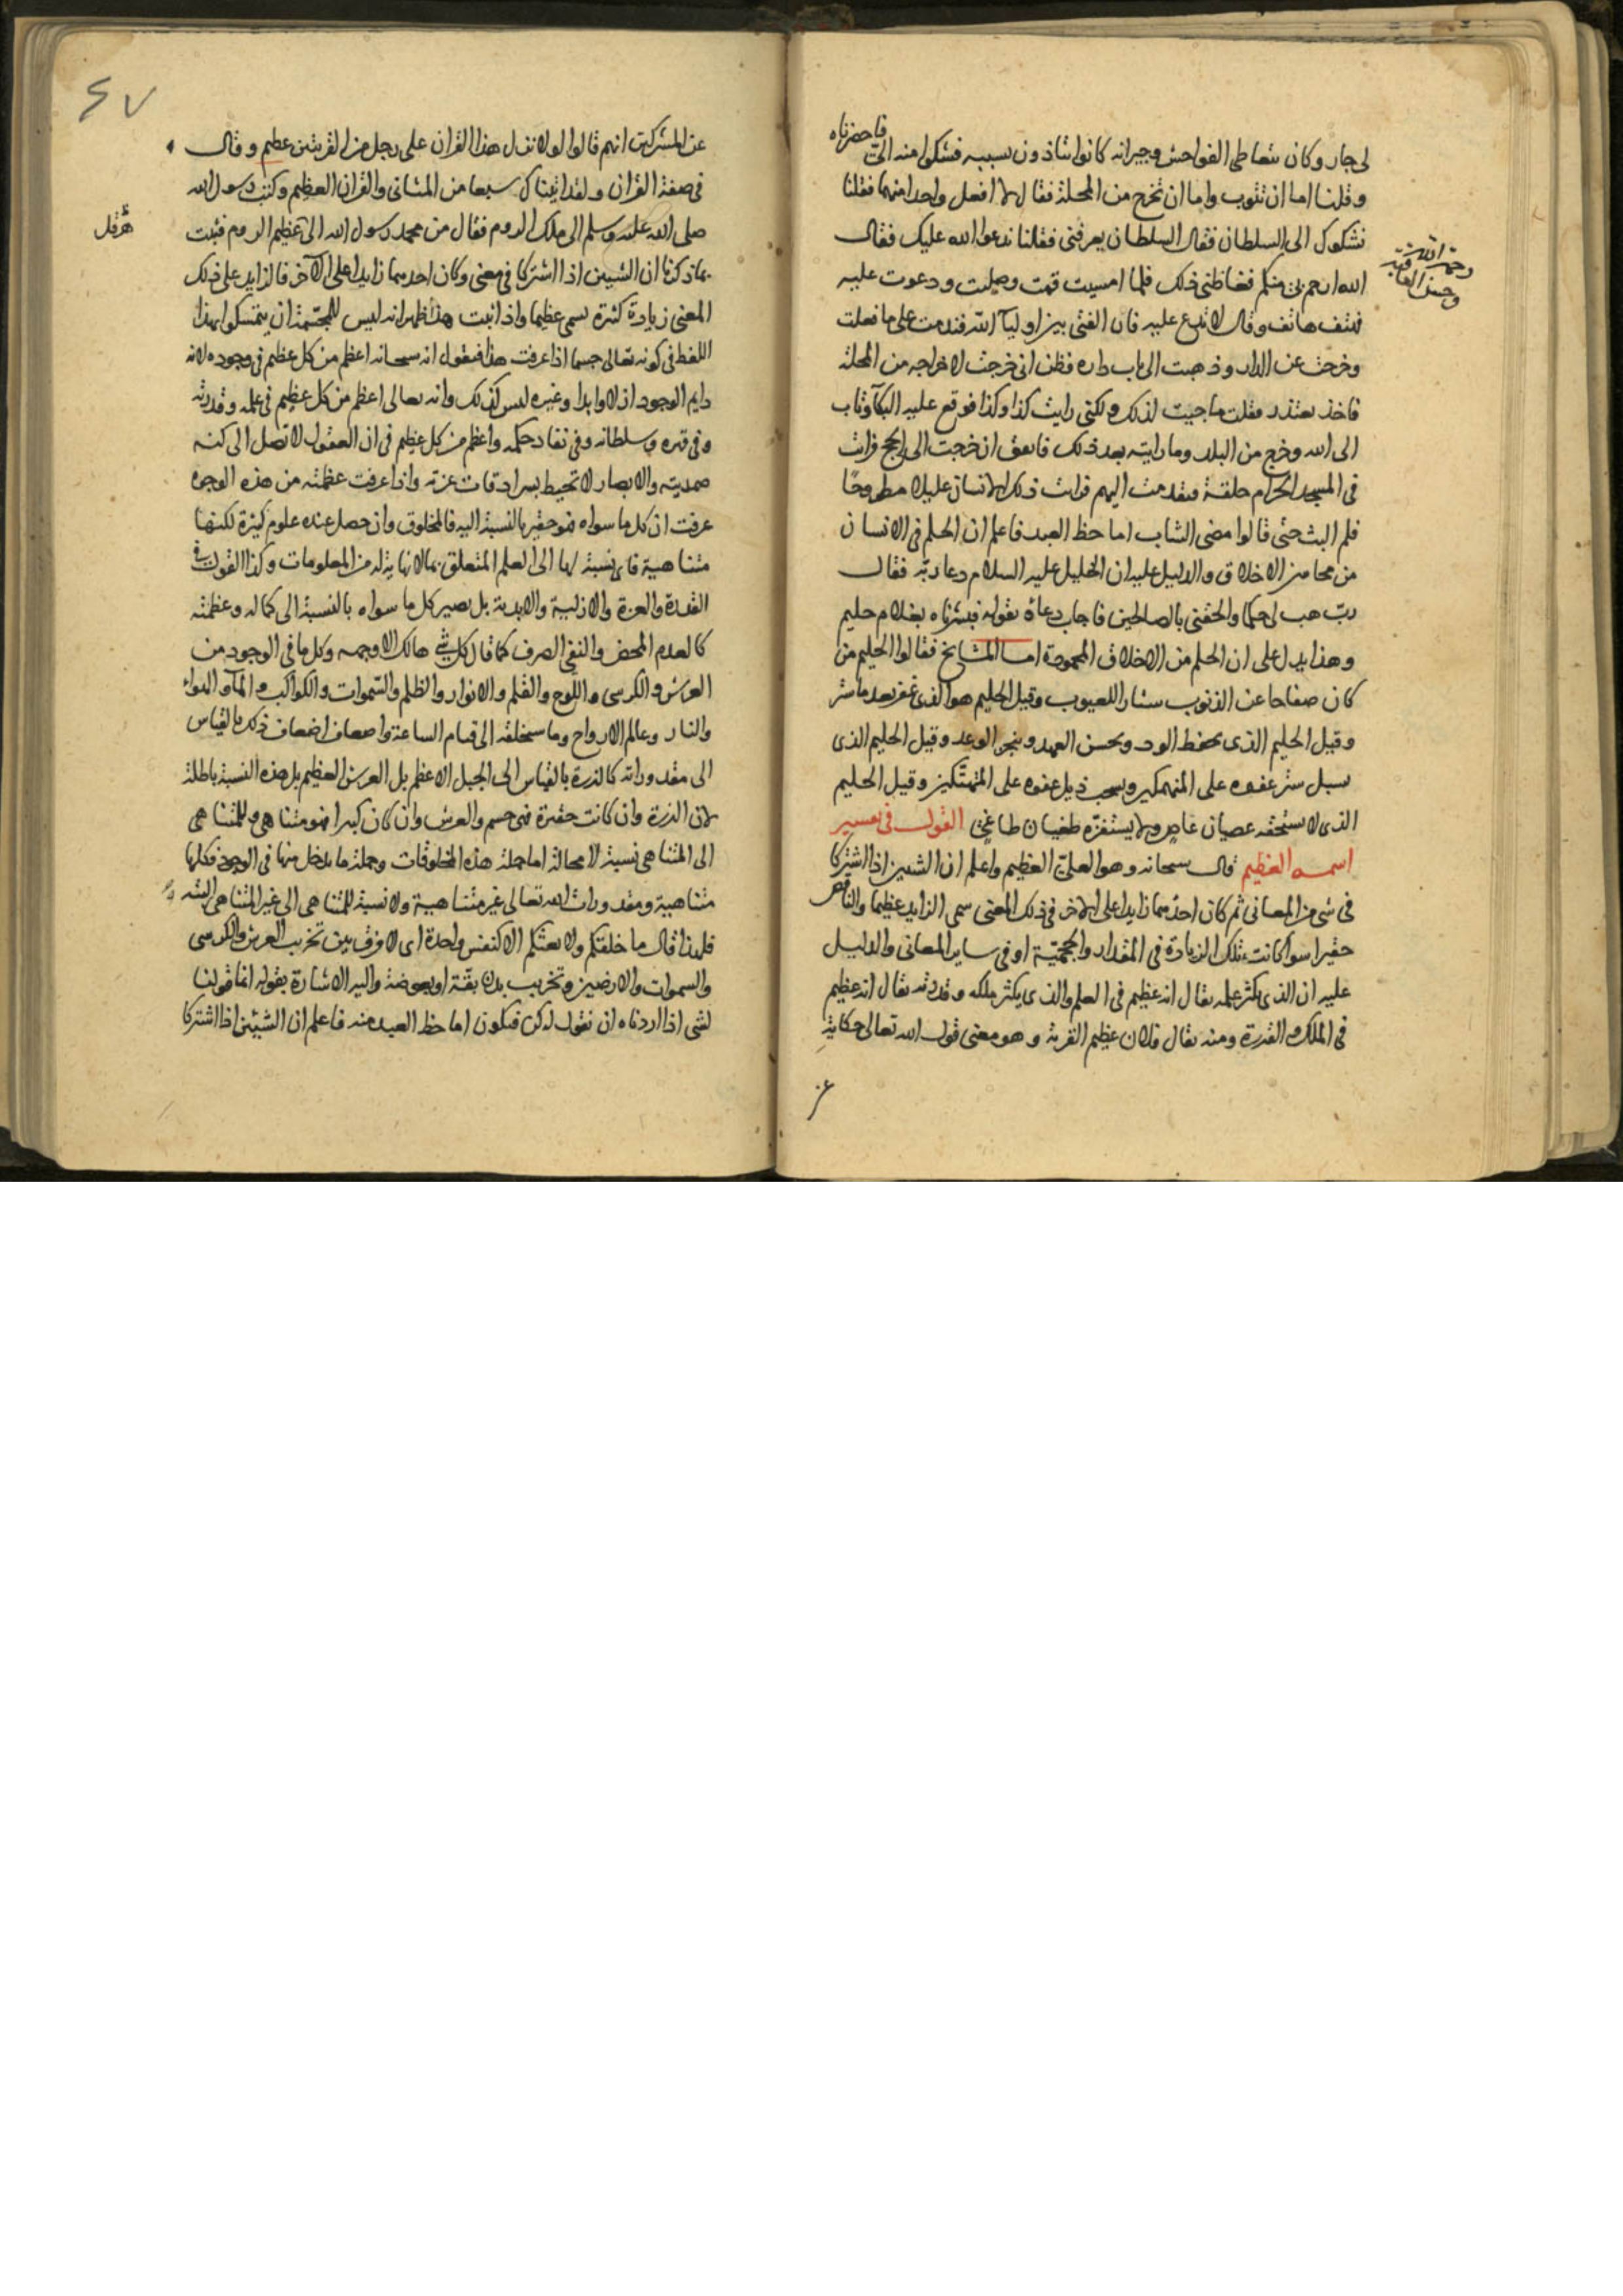 لى جار وكان يتعاطى الفواحش وجيرانه كانوا يتاذون بسببه فشكوا منه الىّ فاحضرناه
وقلنا اما ان تتوب واما ان تخرج من المحلة فقال لا افعل واحدا منهما فقلنا
نشكوك الى السلطان فقال السلطان يعرفنى فقلنا ندعوا الله عليك فقال
الله ارحم بى منكم فغاظنى ذلك فلما امسيت قمت وصليت ودعوت عليه
فهتف هاتف وقال لا تدع عليه فان الفتى من اولياء الله فندمت على ما فعلت
رحمة الله
وحسن العاقبة
وخرجت عن الدار وذهبت الى باب داره فظن انى خرجت لاخراجه من المحلة
فاخذ يعتذر فقلت ما جيت لذلك ولكنى رايت كذا وكذا فوقع عليه البكآ وتاب
الى الله وخرج من البلد وما رايته بعد ذلك فاتفق ان خرجت الى الحج فرايت
فى المسجد الحرام حلقة فتقدمت اليهم فرايت ذلك الانسان عليلا مطروحًا
فلم البث حتى قالوا مضى الشاب اما حظ العبد فاعلم ان الحلم فى الانسان
من محاسن الاخلاق والدليل عليه ان الخليل عليه السلام دعا ربّه فقال
ربّ هب لى حكما والحقنى بالصالحين فاجاب دعاه بقوله فبشرناه بغلام حليم
وهذا يدل على ان الحلم من الاخلاق المحمودة اما المشايخ فقالوا الحليم من
كان صفاحا عن الذنوب ستار اللعيوب وقيل الحليم هو الذى غفر بعد ما ستر
وقيل الحليم الذى يحفظ الود ويحسن العهد وينجز الوعد وقيل الحليم الذى
يسبل ستر عفوه على المنهمكين ويسحب ذيل عفوه على المتهتكين وقيل الحليم
الذى لا يستخفه عصيان عاص ولا يستفزه طغيان طاغ القول فى تفسير
اسمه العظيم قال سبحانه وهو العلىّ العظيم واعلم ان الشيين اذا اشتركا
فى شى من المعانى ثم كان احدهما زايدا على الاخر فى ذلك المعنى سمى الزايد عظيما والناقص
حقيرا سوآ كانت تلك الزيادة فى المقدار والحجميّة او فى ساير المعانى والدليل
عليه ان الذى يكثر علمه يقال انه عظيم فى العلم والذى يكثر ملكه وقدرته يقال انه عظيم
فى الملك والقدرة ومنه يقال فلان عظيم القرية وهو معنى قول الله تعالى حكاية
عن
٤٧
عن المشركين انهم قالوا لولا نزل هذا القران على رجل من القريتين عظيم وقال
فى صفة القران ولقد اتيناك سبعا من المثانى والقران العظيم وكتب رسول الله
صلى الله عليه وسلم الى ملك الروم فقال من محمد رسول الله الى عظيم الروم فثبت
هرقل
بما ذكرنا ان الشيين اذا اشتركا فى معنى وكان احدهما زايدا على الآخر فالزايد على ذلك
المعنى زيادة كثيرة يسمى عظيما واذا ثبت هذا ظهر انه ليس للمجسّمة ان يتمسكوا بهذا
اللفظ فى كونه تعالى جسما اذا عرفت هذا فنقول انه سبحانه اعظم من كل عظيم فى وجوده لانه
دايم الوجود ازلا وابدا وغيره ليس كذلك وانه تعالى اعظم من كل عظيم فى علمه وقدرته
وفى قهره وسلطانه وفى نفاد حكمه واعظم من كل عظيم فى ان العقول لا تصل الى كنه
صمديته والابصار لا تحيط بسرادقات عزته واذا عرفت عظمته من هذه الوجوه
عرفت ان كل ما سواه فهو حقير بالنسبة اليه فالمخلوق وان حصل عنده علوم كثيرة لكنها
متناهية فاى نسبة لها الى العلم المتعلق بما لا نهاية له من المعلومات وكذا القول فى
القدرة والعزة والازلية والابدية بل يصير كل ما سواه بالنسبة الى كماله وعظمته
كالعدم المحض والنفى الصرف كما قال كل شى هالك الا وجهه وكل ما فى الوجود من
العرش والكرسى واللوح والقلم والانوار والظلم والسّموات والكواكب والمآ والهواء
والنار وعالم الارواح وما سيخلقه الى قيام الساعة واضعاف اضعاف ذلك بالقياس
الى مقدوراته كالذرة بالقياس الى الجبل الاعظم بل العرش العظيم بل هذه النسبة باطلة
لان الذرة وان كانت حقيرة فهى جسم والعرش وان كان كبيرا فهو متناهى وللمتناهى
الى المتناهى نسبة لا محالة اما جملة هذه المخلوقات وجملة ما يدخل منها فى الوجود فكلها
متناهية ومقدورات الله تعالى غير متناهية ولا نسبة للمتناهى الى غير المتناهى البتة
فلهذا قال ما خلقكم ولا بعثكم الا كنفس واحدة اى لا فرق بين تخريب العرش والكرسى
والسموات والارضين وتخريب بدن بقة او بعوضة واليه الاشارة بقوله انما قولنا
لشى اذا اردناه ان نقول له كن فيكون اما حظ العبد منه فاعلم ان الشيئين اذا اشتركا